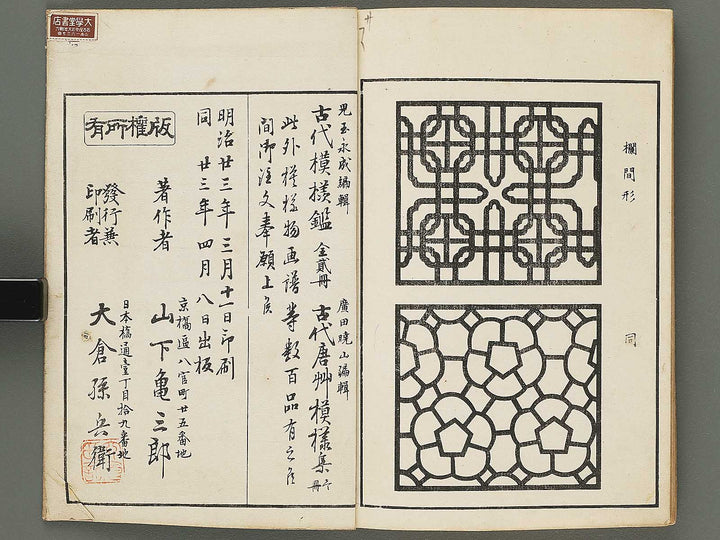 欄間形
同
児玉永成編輯
古代模様鑑 全貳冊
廣田曉山編輯
古代唐艸模様集
此外模様物画譜等数百品有之候
間御注文奉願上候
明治廿三年三月十一日印刷
同 廿三年四月八日出板
京橋區八官町廿五番地
著作者 山下亀三郎
日本橋通壹丁目拾九番地
發行兼
印刷者
大倉孫兵衛
版權所有
大學堂書店